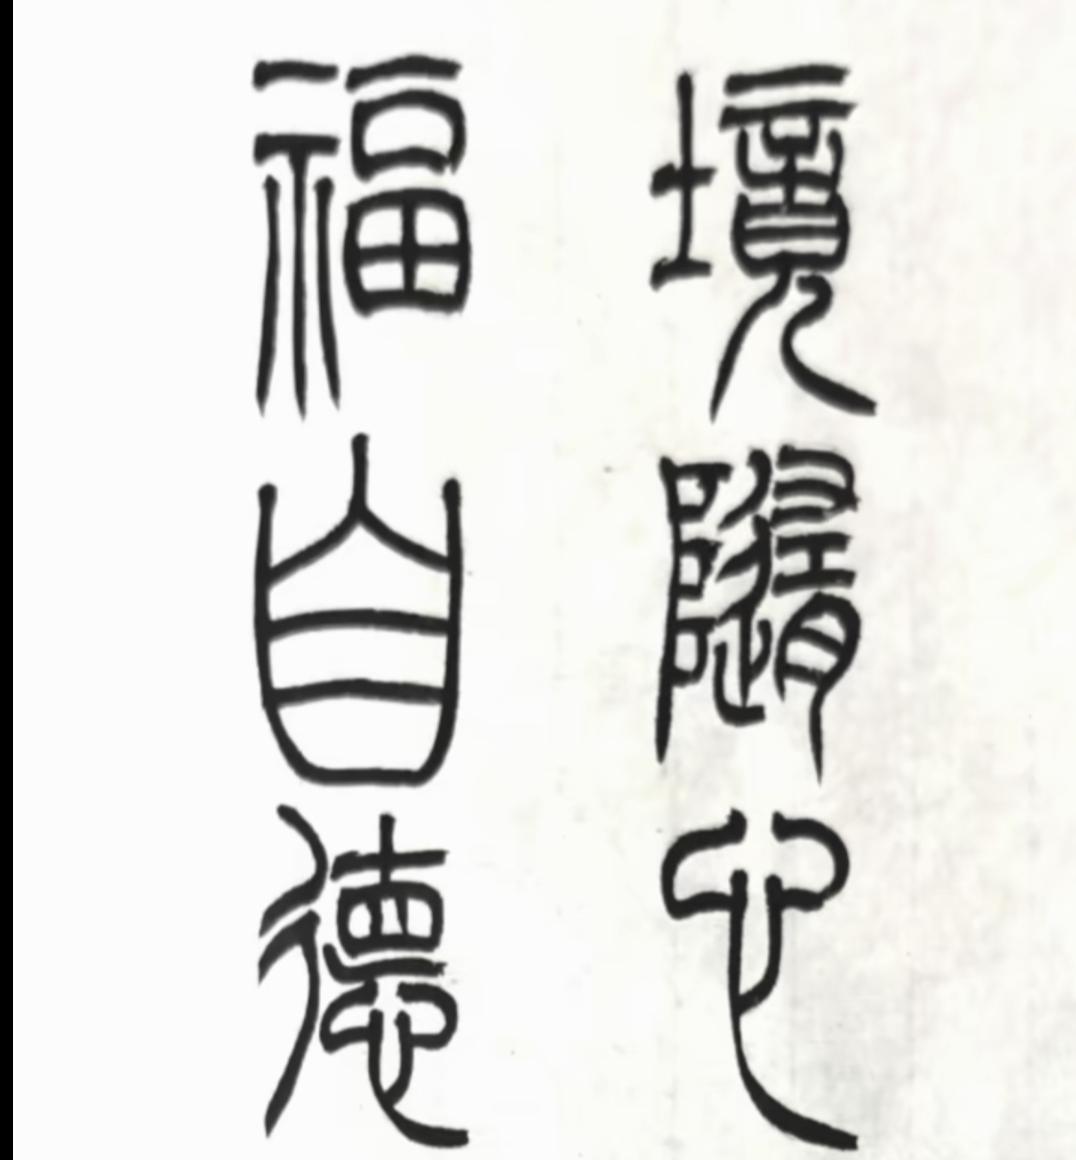 境隨心
福自德